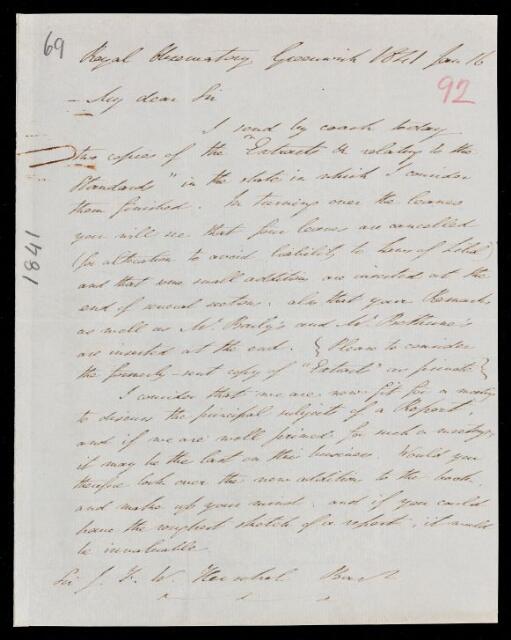 69
Royal Observatory Greenwich 1841 Jan 16
92
My dear Sir
I send by coach today
two copies of the "Extracts &c relating to the
Standards" in the state in which I consider
them finished. In turning over the leaves
you will see that four leaves are cancelled
(for alteration to avoid liability to Law of Libel)
and that some small additions are inserted at the
end of several sections: also that your Remarks
as well as Mr Baily's and Mr Bethune's
are inserted at the end. {Please to consider
the formerly-sent copy of "Extracts" as private.}
I consider that we are now fit for a meeting
to discuss the principal subjects of a Report,
and if we are well primed for such a meeting,
it may be the last on this business. Would you
therefore look over the new addition to the book,
and make up your mind: and if you could
have the roughest sketch of a report, it would
be invaluable
Sir J. F. W. Herschel Bart
1841